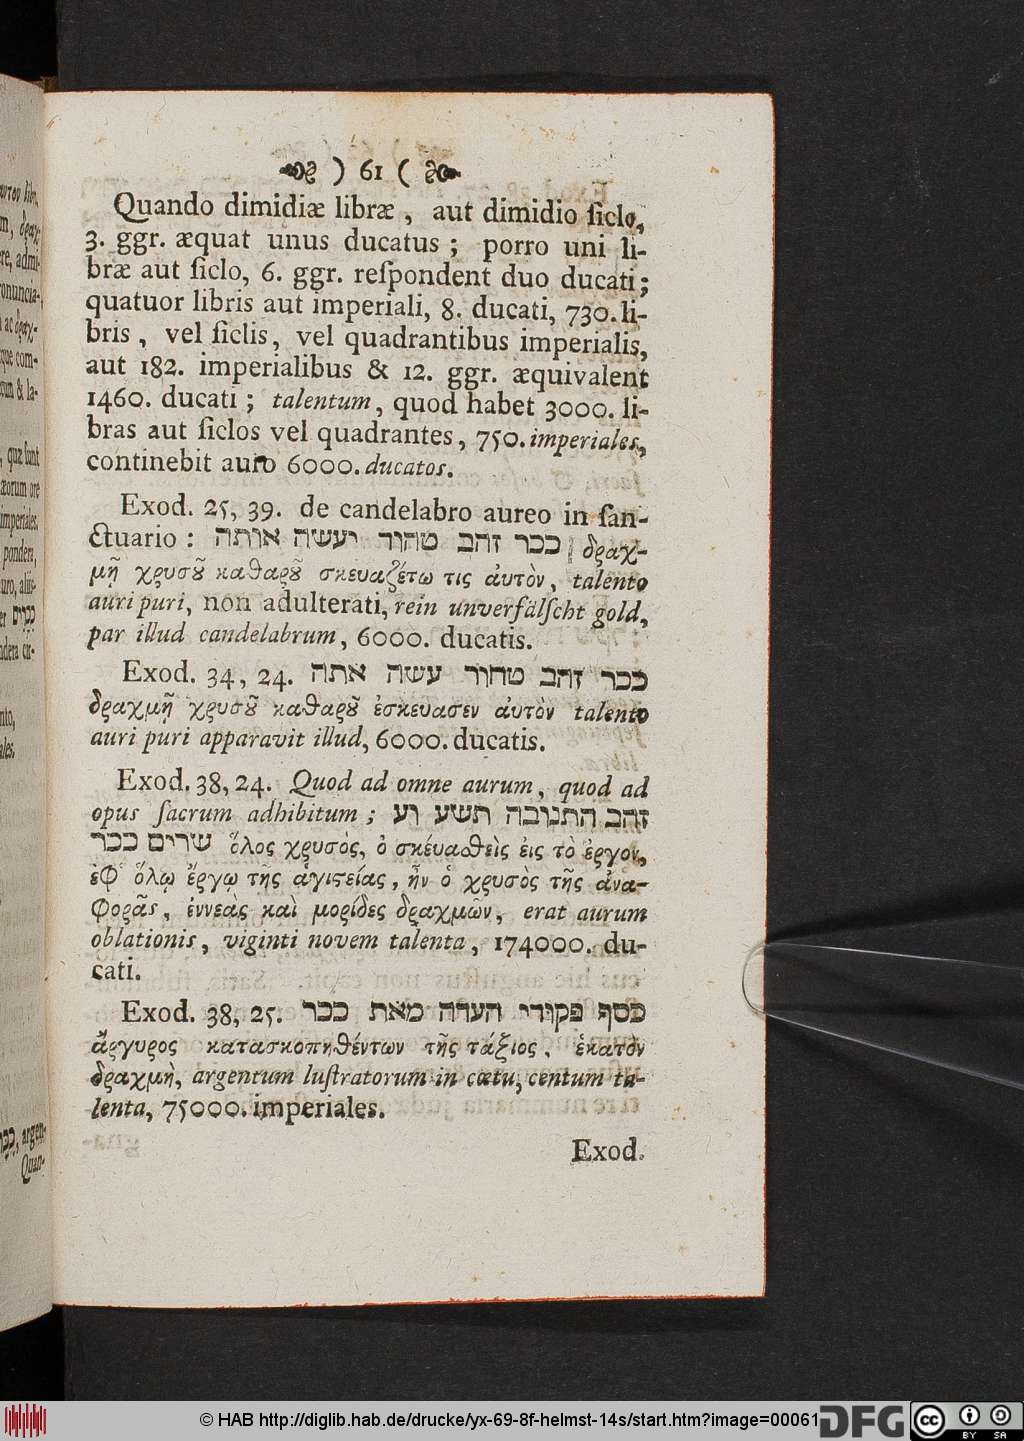 ) 61 (
Quando dimidiæ libræ, aut dimidio ſiclo,
3. ggr. æquat unus ducatus; porro uni li-
bræ aut ſiclo, 6. ggr. reſpondent duo ducati;
quatuor libris aut imperiali, 8. ducati, 730. li-
bris, vel ſiclis, vel quadrantibus imperialis,
aut 182. imperialibus & 12. ggr. æquivalent
1460. ducati; talentum, quod habet 3000. li-
bras aut ſiclos vel quadrantes, 750. imperiales,
continebit auro 6000. ducatos.
Exod. 25, 39. de candelabro aureo in ſan-
ctuario: ככר זהב טהור יעשה אותה δραχ-
μῇ χρυσȣ͂ καθαρȣ͂ σκευαζέτω τις ἀυτὸν, talento
auri puri, non adulterati, rein unverfälſcht gold,
par illud candelabrum, 6000. ducatis.
Exod. 34, 24. ככר זהב טהור עשה אתה
δραχμῇ χρυσȣ͂ καθαρȣ͂ ἐσκευασεν ἀυτὸν talento
auri puri apparavit illud, 6000. ducatis.
Exod. 38, 24. Quod ad omne aurum, quod ad
opus ſacrum adhibitum; זהב התנובה תשע וע
שרים ככר ὅλος χρυσὸς, ὁ σκέυασθεὶς ἐις τὸ ἐργον,
ἐφ᾽ ὅλῳ ἔργῳ τῆς ἁγιςείας, ἦν ὁ χρυσὸς τῆς ἀνα-
φορᾶς, ἐννεὰς καὶ μορίδες δραχμῶν, erat aurum
oblationis, viginti novem talenta, 174000. du-
cati.
Exod. 38, 25. כסף פקודי העדה מאת ככר
ἄργυρος κατασκοπηθέντων τῆς τάξιος, ἑκατὸν
δραχμὴ, argentum luſtratorum in cœtu, centum ta-
lenta, 75000. imperiales.
Exod.
© HAB http://diglib.hab.de/drucke/yx-69-8f-helmst-14s/start.htm?image=00061
DFG
cc
BY SA